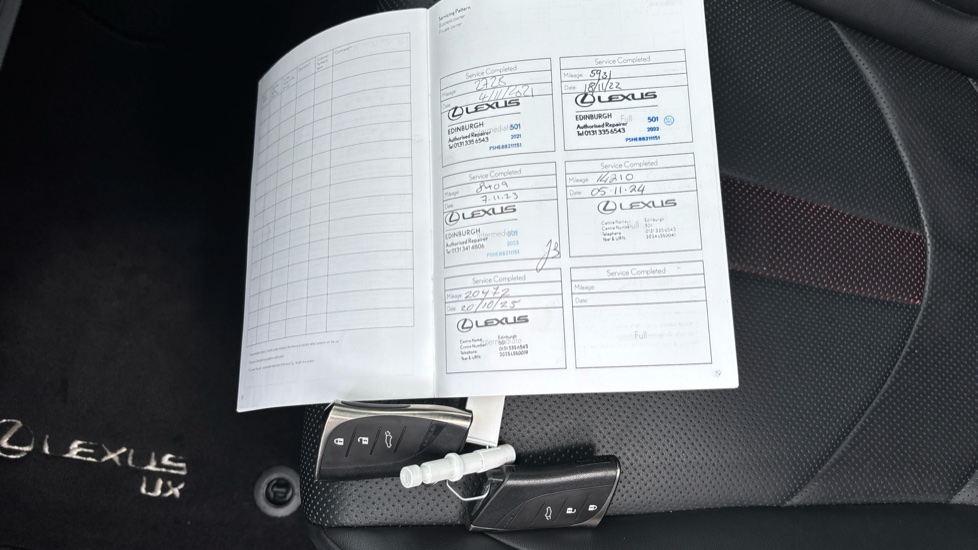 Servicing Pattern
Business owner
Private owner
Service Completed
Mileage:
Date:
4/11/2021
LEXUS
EDINBURGH
Intermediate
501
Authorised Repairer
2021
Tel 0131 335 6543
Service Completed
Mileage: 5931
Date: 18/11/22
LEXUS
EDINBURGH
Full
501
Authorised Repairer
2022
Tel 0131 335 6543
Service Completed
Mileage: 8409
Date: 7.11.23
LEXUS
EDINBURGH
Intermediate
501
Authorised Repairer
2023
Tel 0131 341 6806
Service Completed
Mileage: 14210
Date: 05.11.24
LEXUS
Centre Name
Edinburgh
Centre Number
Full
501
Telephone
0131 335 6543
Year & URN:
Service Completed
Mileage: 20472
Date: 20/10/25
LEXUS
Centre Name
Edinburgh
Centre Number
Intermediate
501
Telephone
0131 335 6543
Year & URN:
Service Completed
Mileage:
Date:
Full
LEXUS
UX